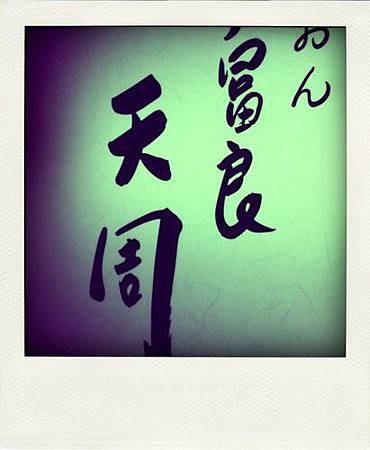 おん
富良
天周